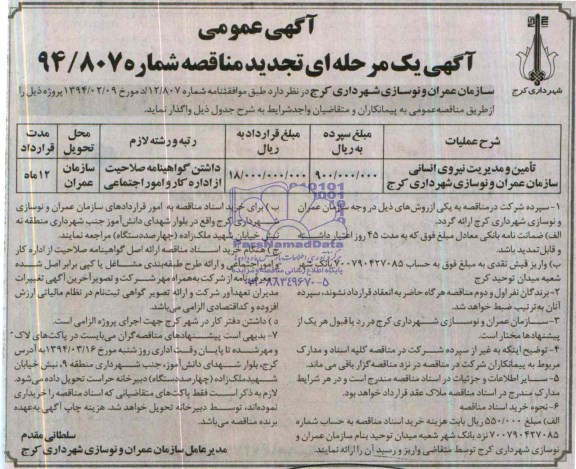 آگهی عمومی
آگهی یک مرحله ای تجدید مناقصه شماره ۹۴/۸۰۷
شهرداری کرج
سازمان عمران و نوسازی شهرداری کرج در نظر دارد طبق موافقتنامه شماره ۱۲/۸۰۷/د مورخ ۱۳۹۴/۰۲/۰۹ پروژه ذیل را
از طریق مناقصه عمومی به پیمانکاران و متقاضیان واجد شرایط به شرح جدول ذیل واگذار نماید.
شرح عملیات
مبلغ سپرده به ریال
مبلغ قرارداد به ریال
رتبه و رشته لازم
محل تحویل
مدت قرارداد
تأمین و مدیریت نیروی انسانی سازمان عمران و نوسازی شهرداری کرج
۹۰۰/۰۰۰/۰۰۰
۱۸/۰۰۰/۰۰۰/۰۰۰
داشتن گواهینامه صلاحیت از اداره کار و امور اجتماعی
سازمان عمران
۱۲ ماه
۱- سپرده شرکت در مناقصه به یکی از روش‌های ذیل در وجه سازمان عمران
و نوسازی شهرداری کرج ارائه گردد.
الف) ضمانت نامه بانکی معادل مبلغ فوق که به مدت ۴۵ روز اعتبار داشته
و قابل تمدید باشد.
ب) واریز فیش نقدی به مبلغ فوق به حساب ۷۰۰۷۹۰۴۲۷۰۸۵ بانک شهر
شعبه میدان توحید کرج
۲- برندگان نفر اول و دوم مناقصه هرگاه حاضر به انعقاد قرارداد نشوند، سپرده
آنان به ترتیب ضبط خواهد شد.
۳- سازمان عمران و نوسازی شهرداری کرج در رد یا قبول هر یک از
پیشنهادها مختار است.
۴- توضیح اینکه به غیر از سپرده شرکت در مناقصه کلیه اسناد و مدارک
مربوط به پیمانکاران شرکت در مناقصه در نزد مناقصه گزار باقی می ماند.
۵- سایر اطلاعات و جزئیات در اسناد مناقصه مندرج است و در هر شرایط
مدارک مندرج در اسناد مناقصه ملاک عقد قرارداد خواهد بود.
۶- نحوه خرید اسناد مناقصه
الف) مبلغ ۵۵۰/۰۰۰ ریال بابت هزینه خرید اسناد مناقصه به حساب شماره
۷۰۰۷۹۰۴۲۷۰۸۵ نزد بانک شهر شعبه میدان توحید بنام سازمان عمران و
نوسازی شهرداری کرج توسط متقاضی واریز و رسید آن را ارائه نمایند.
ب) برای خرید اسناد مناقصه به امور قراردادهای سازمان عمران و نوسازی
شهرداری کرج واقع در بلوار شهدای دانش آموز جنب شهرداری منطقه نه
نبش خیابان شهید ملک زاده (چهارصد دستگاه) مراجعه نمایند.
ج) هنگام خرید اسناد مناقصه ارائه اصل گواهینامه صلاحیت از اداره کار
و امور اجتماعی و ارائه طرح طبقه بندی مشاغل یا کپی برابر اصل شده
معرفی نامه از شرکت به همراه مهر شرکت و تصویر آخرین آگهی تغییرات
مدیران تعهدآور شرکت و ارائه تصویر گواهی ثبت نام در نظام مالیاتی ارزش
افزوده و کد اقتصادی الزامی می باشد.
د) داشتن دفتر کار در شهر کرج جهت اجرای پروژه الزامی است.
۷- بدیهی است پیشنهادهای مناقصه گران می بایست در پاکت های لاک
و مهر شده تا پایان وقت اداری روز شنبه مورخ ۱۳۹۴/۰۳/۱۶ به آدرس
کرج، بلوار شهدای دانش آموز، جنب شهرداری منطقه ۹، نبش خیابان
شهید ملک زاده (چهارصد دستگاه) دبیرخانه حراست تحویل داده می شود.
لازم به ذکر است فقط پاکت های متقاضیانی که اسناد مناقصه را خریداری
نموده اند، توسط دبیرخانه تحویل خواهد شد. هزینه چاپ آگهی به عهده
برنده مناقصه می باشد.
سلطانی مقدم
مدیرعامل سازمان عمران و نوسازی شهرداری کرج
ParsNamadData
پایگاه اطلاع رسانی مناقصه و مزایده
۰۲۱-۸۸۳۴۹۶۷۰-۵